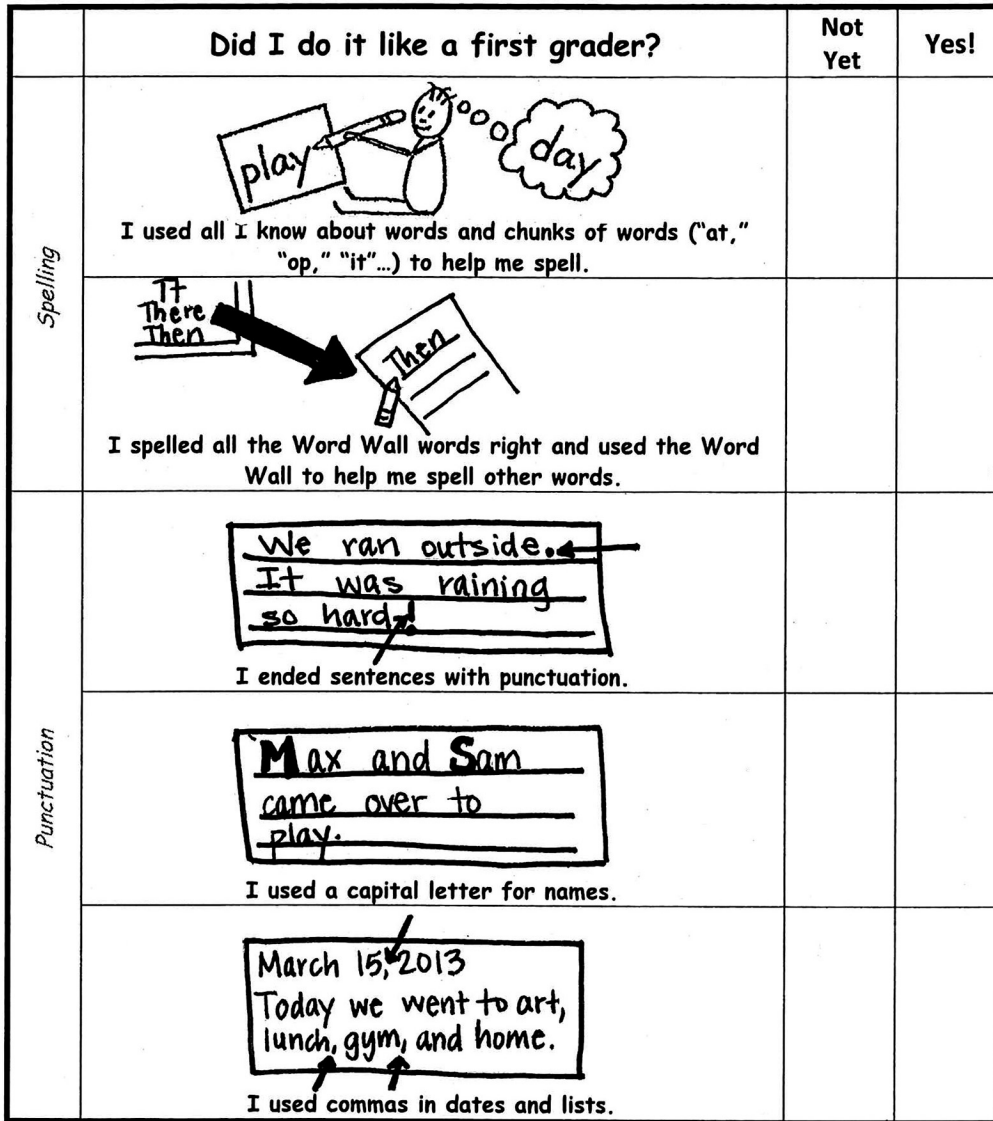 Did I do it like a first grader?
Not
Yet
Yes!
Spelling
play
day
I used all I know about words and chunks of words (“at,”
“op,” “it”…) to help me spell.
It
There
Then
Then
I spelled all the Word Wall words right and used the Word
Wall to help me spell other words.
Punctuation
We ran outside.
It was raining
so hard!
I ended sentences with punctuation.
Max and Sam
came over to
play.
I used a capital letter for names.
March 15, 2013
Today we went to art,
lunch, gym, and home.
I used commas in dates and lists.